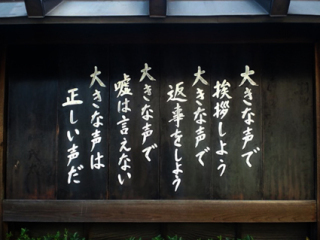 大きな声で
挨拶しよう
大きな声で
返事をしよう
大きな声で
嘘は言えない
大きな声は
正しい声だ